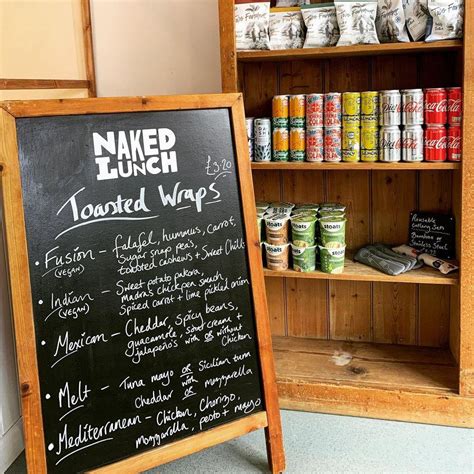 NAKED
LUNCH
£3.20
Toasted Wraps
• Fusion – Falafel, hummus, carrot,
(VEGAN) sugar snap peas,
toasted cashews + Sweet Chilli
• Indian – Sweet potato pakora,
(VEGAN) madras chickpea smash
Spiced carrot + lime pickled onion
• Mexican – Cheddar, Spicy beans,
guacamole, sour cream +
jalapeño's with OR without
Chicken
• Melt – Tuna mayo OR Sicilian tuna
with
Cheddar OR mozzarella
• Mediterranean – Chicken, Chorizo,
mozzarella, pesto + mayo
Two Farmers
stoats
stoats
Coca-Cola
Reusable
cutlery sets
Bamboo or
Stainless Steel